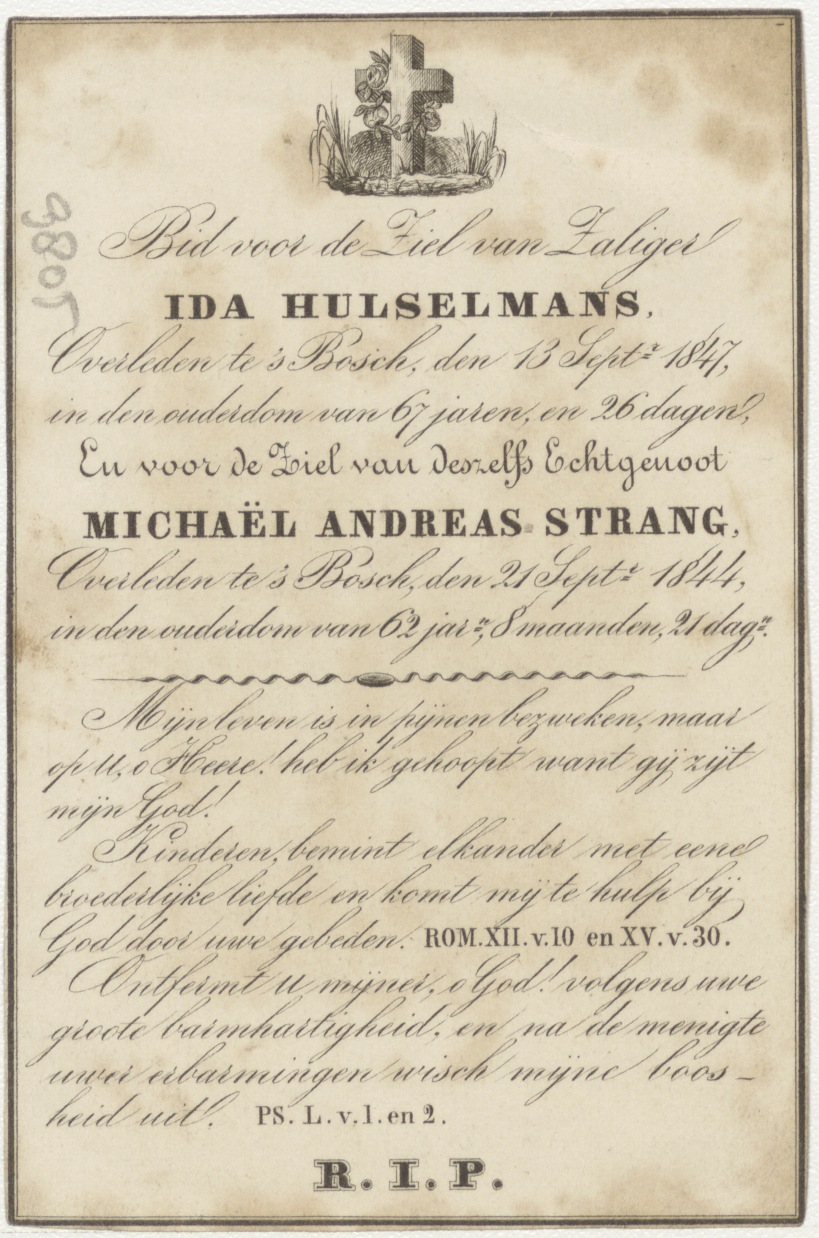 Bid voor de Ziel van Zaliger
IDA HULSELMANS,
Overleden te 's Bosch, den 13 Septr 1847,
in den ouderdom van 67 jaren, en 26 dagen,
En voor de Ziel van deszelfs Echtgenoot
MICHAËL ANDREAS STRANG,
Overleden te 's Bosch, den 21 Septr 1844,
in den ouderdom van 62 jarn, 8 maanden, 21 dagn.
Mijn leven is in pijnen bezweken, maar
op U, o Heere! heb ik gehoopt want gij zijt
mijn God!
Kinderen, bemint elkander met eene
broederlijke liefde en komt mij te hulp bij
God door uwe gebeden. ROM. XII. v. 10 en XV. v. 30.
Ontfermt U mijner, o God! volgens uwe
groote barmhartigheid, en na de menigte
uwer erbarmingen wisch mijne boos-
heid uit. PS. L. v. 1. en 2.
R. I. P.
9805